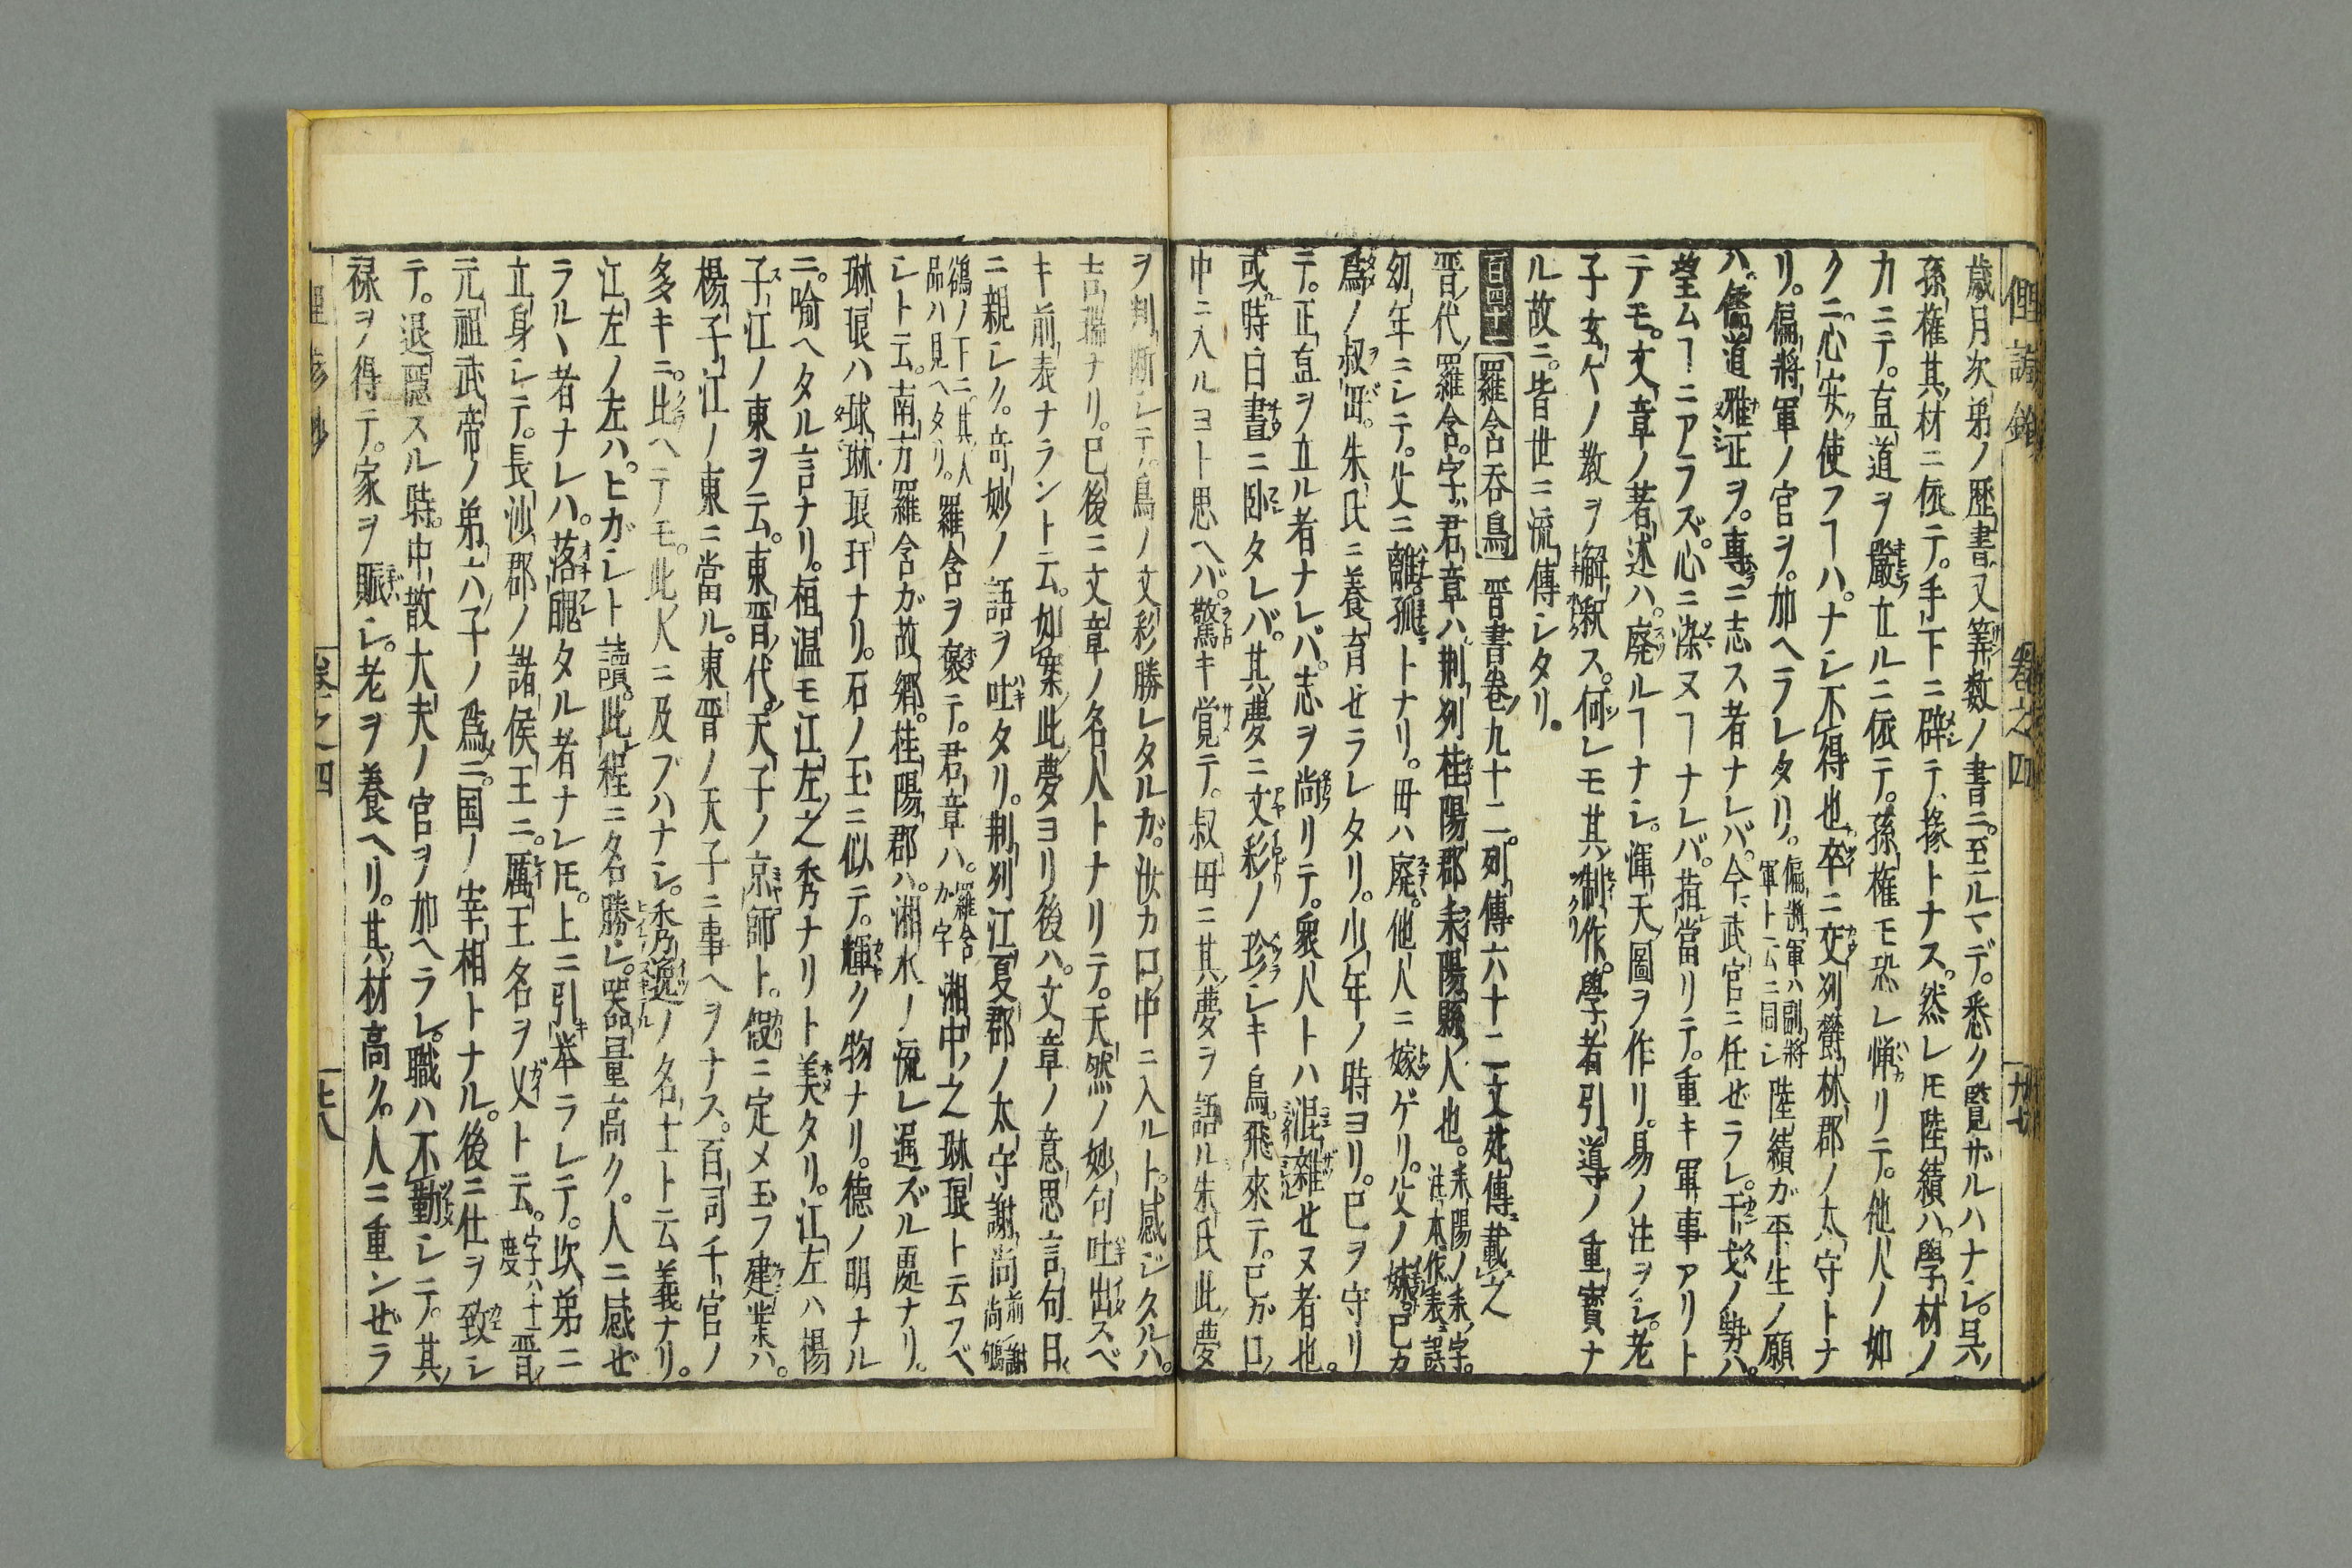 俚諺鈔 卷之四 廿七
歳月次弟ノ歴書又筭数ノ書ニ至ルマデ悉ク覽ザルハナシ呉ノ
孫權其材ニ依テ手下ニ辟テ掾トナス然レ𪜈陸績ハ學材ノ
力ニテ直道ヲ嚴立ルニ依テ孫權モ恐レ憚リテ他人ノ如
クニ心安使フヿハナシ不得也卒ニ交州欝林郡ノ太守トナ
リ偏將軍ノ官ヲ加ヘラレタリ偏將軍ハ副將軍ト云ニ同シ陸績ガ平生ノ願
ハ儒道雅正ヲ専ニ志ス者ナレバ今武官ニ任ゼラレ干戈ノ勢ハ
望ムヿニアラズ心ニ染ヌヿナレバ指當リテ重キ軍事アリト
テモ文章ノ著述ハ廃ルヿナシ渾天圖ヲ作リ易ノ注ヲシ老
子玄ケノ教ヲ解釈ス何レモ其制作學者引導ノ重寳ナ
ル故ニ皆世ニ流傳シタリ
百四十 羅含呑鳥 晋書卷九十二列傳六十二文苑傳載之
晋代羅含字君章ハ荆州桂陽郡耒陽縣人也耒陽ノ耒ノ字注本作表誤
幼年ニシテ父ニ離孤トナリ母ハ廃他人ニ嫁ゲリ父ノ妹己カ
爲ノ叔母朱氏ニ養育セラレタリ少年ノ時ヨリ已ヲ守リ
テ正直ヲ立ル者ナレバ志ヲ尚リテ衆人トハ混雜セヌ者也
或時白晝ニ臥タレバ其夢ニ文彩ノ珍シキ鳥飛來テ己カ口ノ
中ニ入ルヨト思ヘバ驚キ覚テ叔母ニ其夢ヲ語ル朱氏此夢
ヲ判断シテ鳥ノ文彩勝レタルガ汝カ口中ニ入ルト感ジタルハ
吉瑞ナリ已後ニ文章ノ名人トナリテ天然ノ妙句吐出スベ
キ前表ナラント云如案此夢ヨリ後ハ文章ノ意思言句日
ニ親シク奇妙ノ語ヲ吐タリ荆州江夏郡ノ太守謝尚前謝尚鴝
鵒ノ下ニ其人品ハ見ヘタリ羅含ヲ褒テ君章ハ羅含カ字湘中之琳琅ト云フベ
シト云南方羅含ガ故郷桂陽郡ハ湘水ノ流レ過ズル處ナリ
琳琅ハ球琳琅玕ナリ石ノ玉ニ似テ輝ク物ナリ德ノ明ナル
ニ喩ヘタル言ナリ桓温モ江左之秀ナリト美タリ江左ハ楊
子江ノ東ヲ云東晋代天子ノ京師ト假ニ定メ玉フ建業ハ
楊子江ノ東ニ當ル東晋ノ天子ニ事ヘヲナス百司千官ノ
多キニ此ヘテモ此人ニ及ブハナシ秀逸ノ名士ト云義ナリ
江左ノ左ハヒガシト讀此程ニ名勝シ器量高ク人ニ感ぜ
ラルヽ者ナレハ落魄タル者ナレ𪜈上ニ引举ラレテ次弟ニ
立身シテ長沙郡ノ諸侯王ニ厲王名ヲ乂ト云字ハ士度晋
元祖武帝ノ弟六子ノ爲ニ国ノ宰相トナル後ニ仕ヲ致シ
テ退隱スル時中散大夫ノ官ヲ加ヘラレ職ハ不勤シテ其
禄ヲ得テ家ヲ賑シ老ヲ養ヘリ其材高ク人ニ重ンゼラ
卷之四 廿八